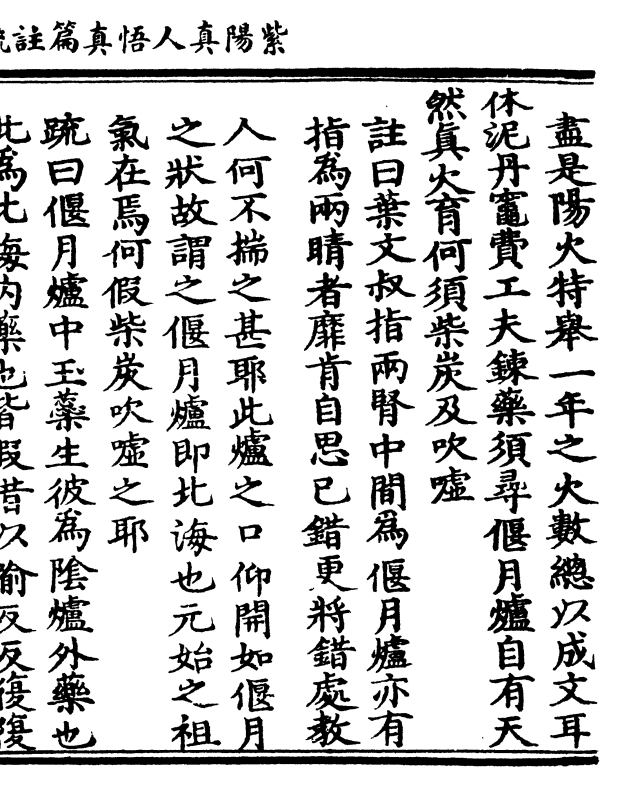 紫陽真人悟真篇註疏
盡是陽火特舉一年之火數總以成文耳
休泥丹竈費工夫鍊藥須尋偃月爐自有天
然真火育何須柴炭及吹噓
註曰葉文叔指兩腎中間為偃月爐亦有
指為兩睛者靡肯自思已錯更將錯處教
人何不揣之甚耶此爐之口仰開如偃月
之狀故謂之偃月爐即北海也元始之祖
氣在焉何假柴炭吹噓之耶
疏曰偃月爐中玉蘂生彼為陰爐外藥也
此為北海内藥也皆假借以喻反反復復